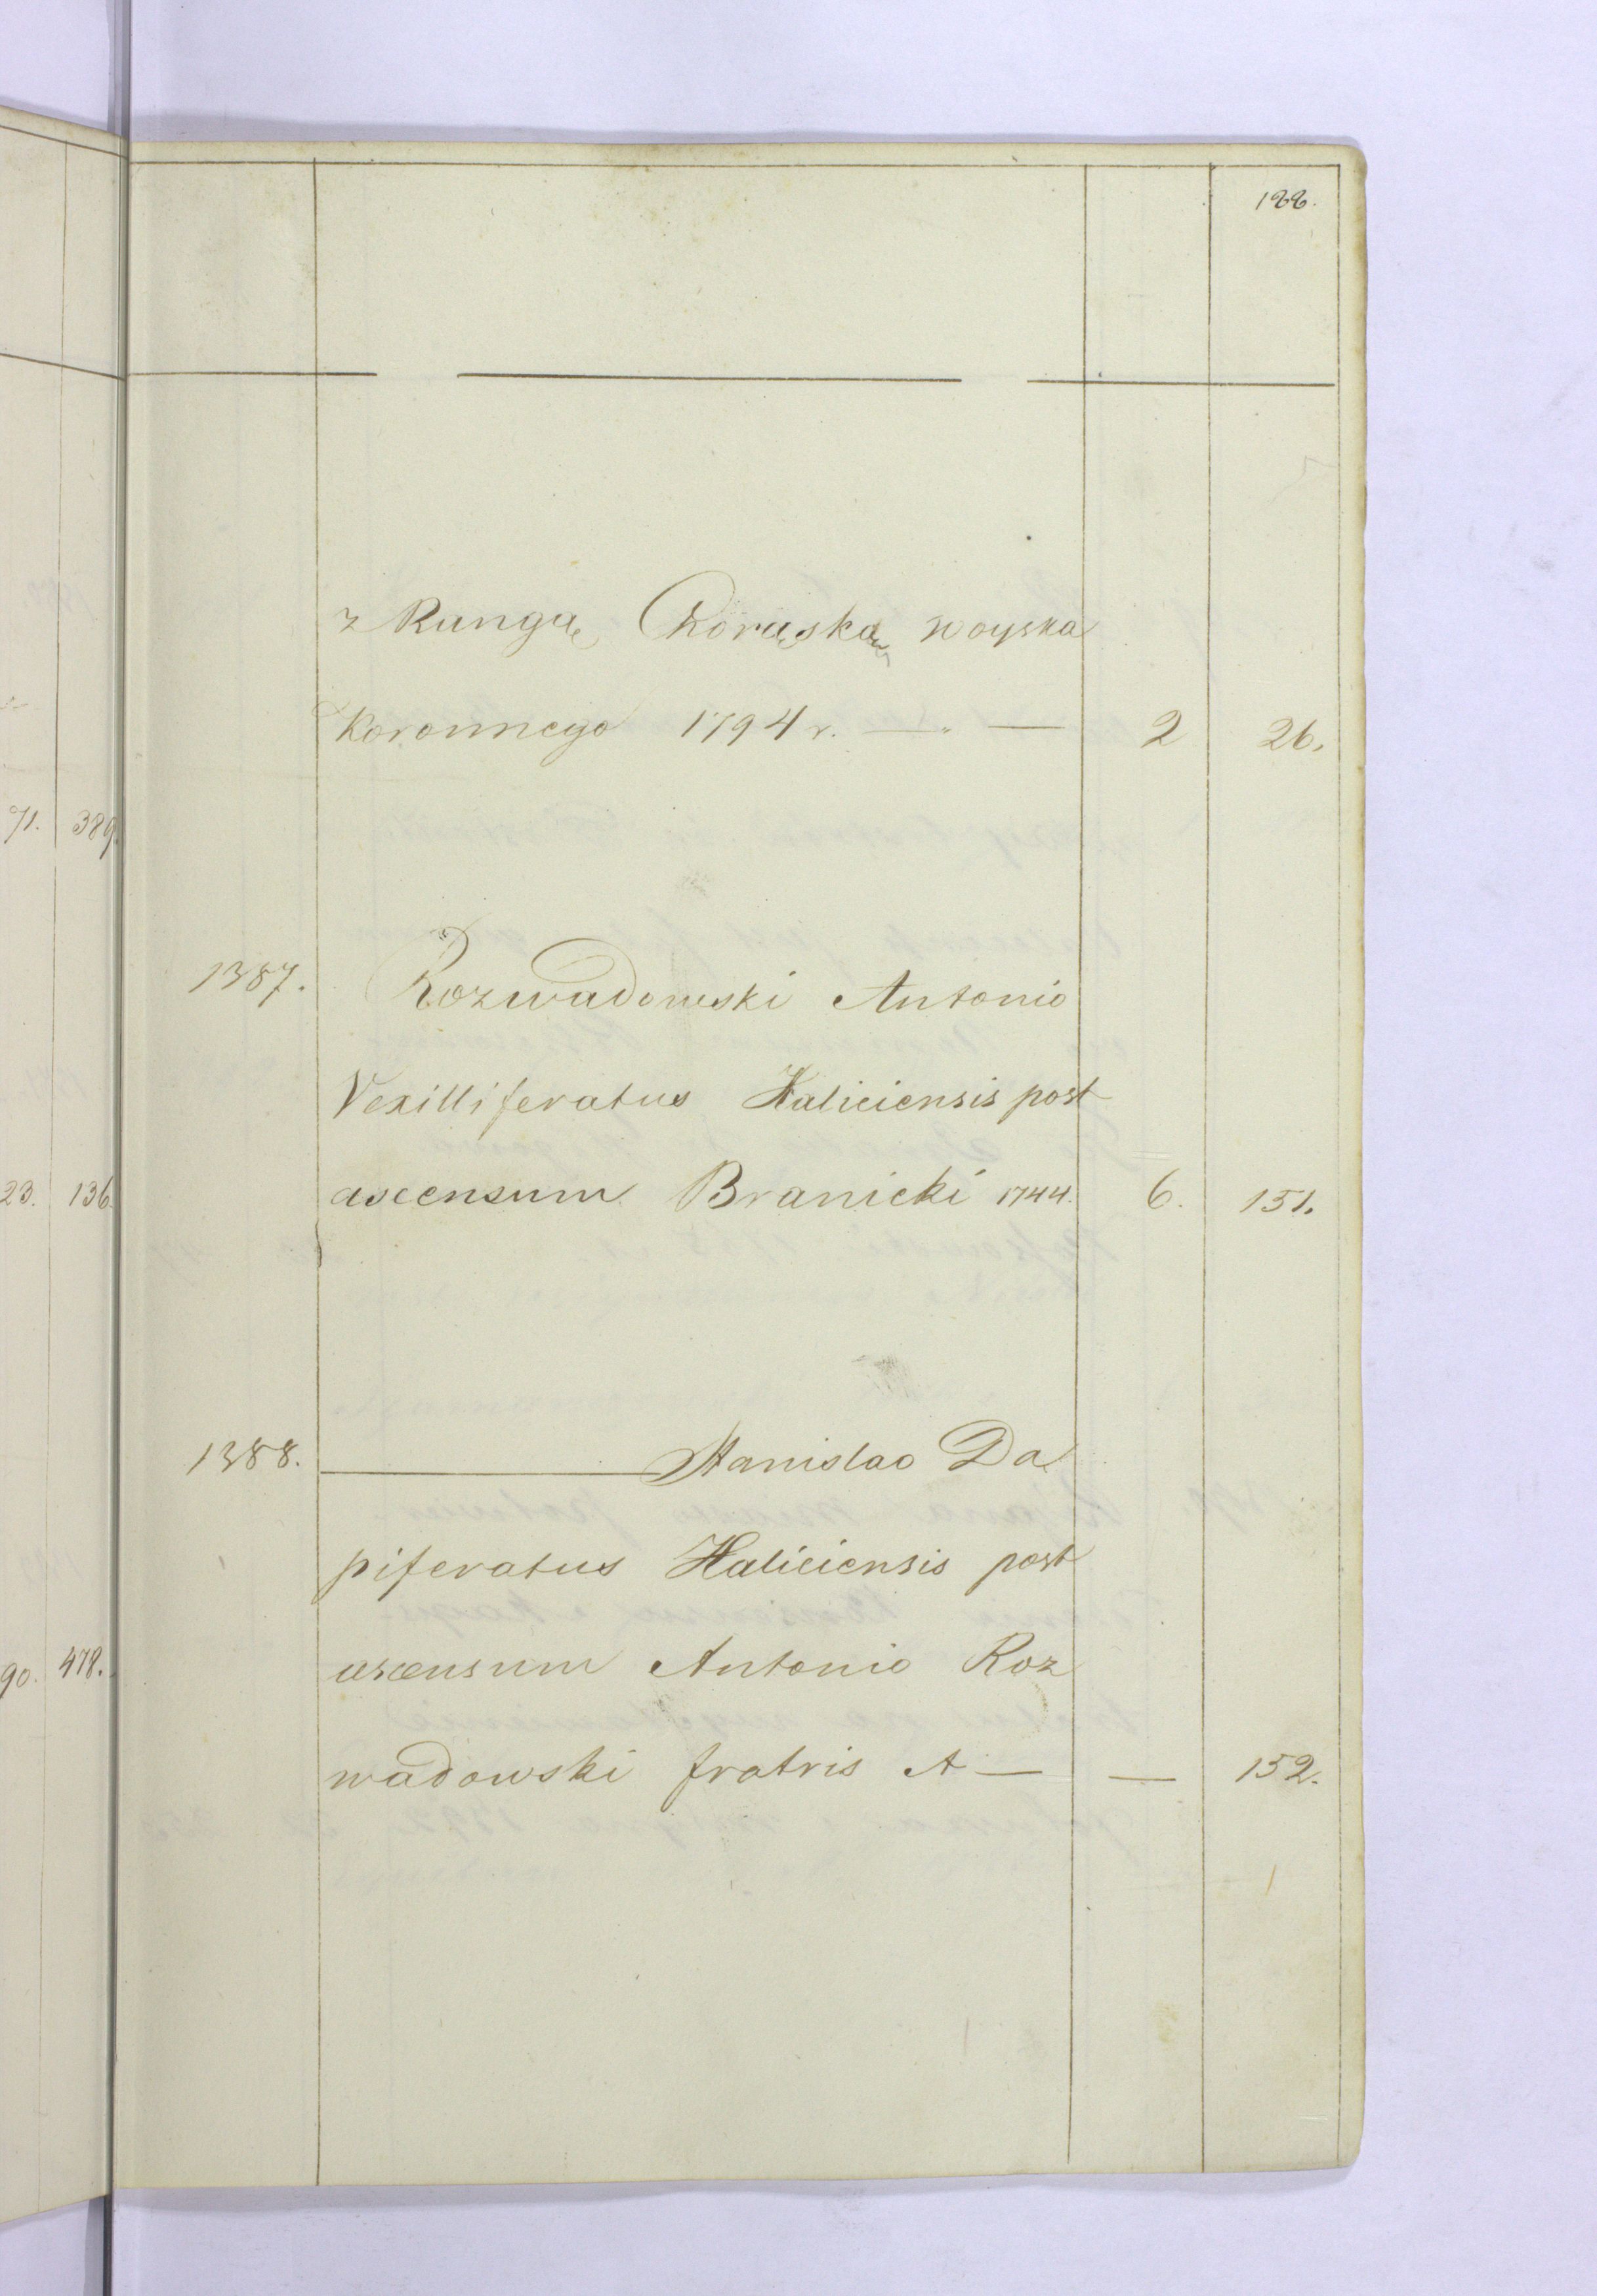 188.
z Rangą Chorąską woyska
Koronnego 1794 r. — „ — 2 26.
71. 389.
1387. Rozwadowski Antonio
Vexilliferatus Haliciensis post
23. 136.
ascensum Branicki 1744. 6. 151.
1388. ——— Stanislao Da
piferatus Haliciensis post
90. 478.
ascensum Antonio Roz
wadowski fratris A — — 152.